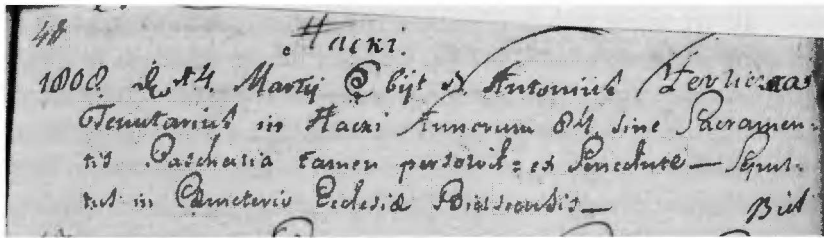 48
Hacki.
1808. D. 14. Martij Obijt D. Antonius
Tenutarius in Hacki Annorum 84. sine Sacramen-
tis Paschalia tamen persolvit = ex Senectute — Sepul-
tus in Cemeterio Ecclesiæ Bielscensis —